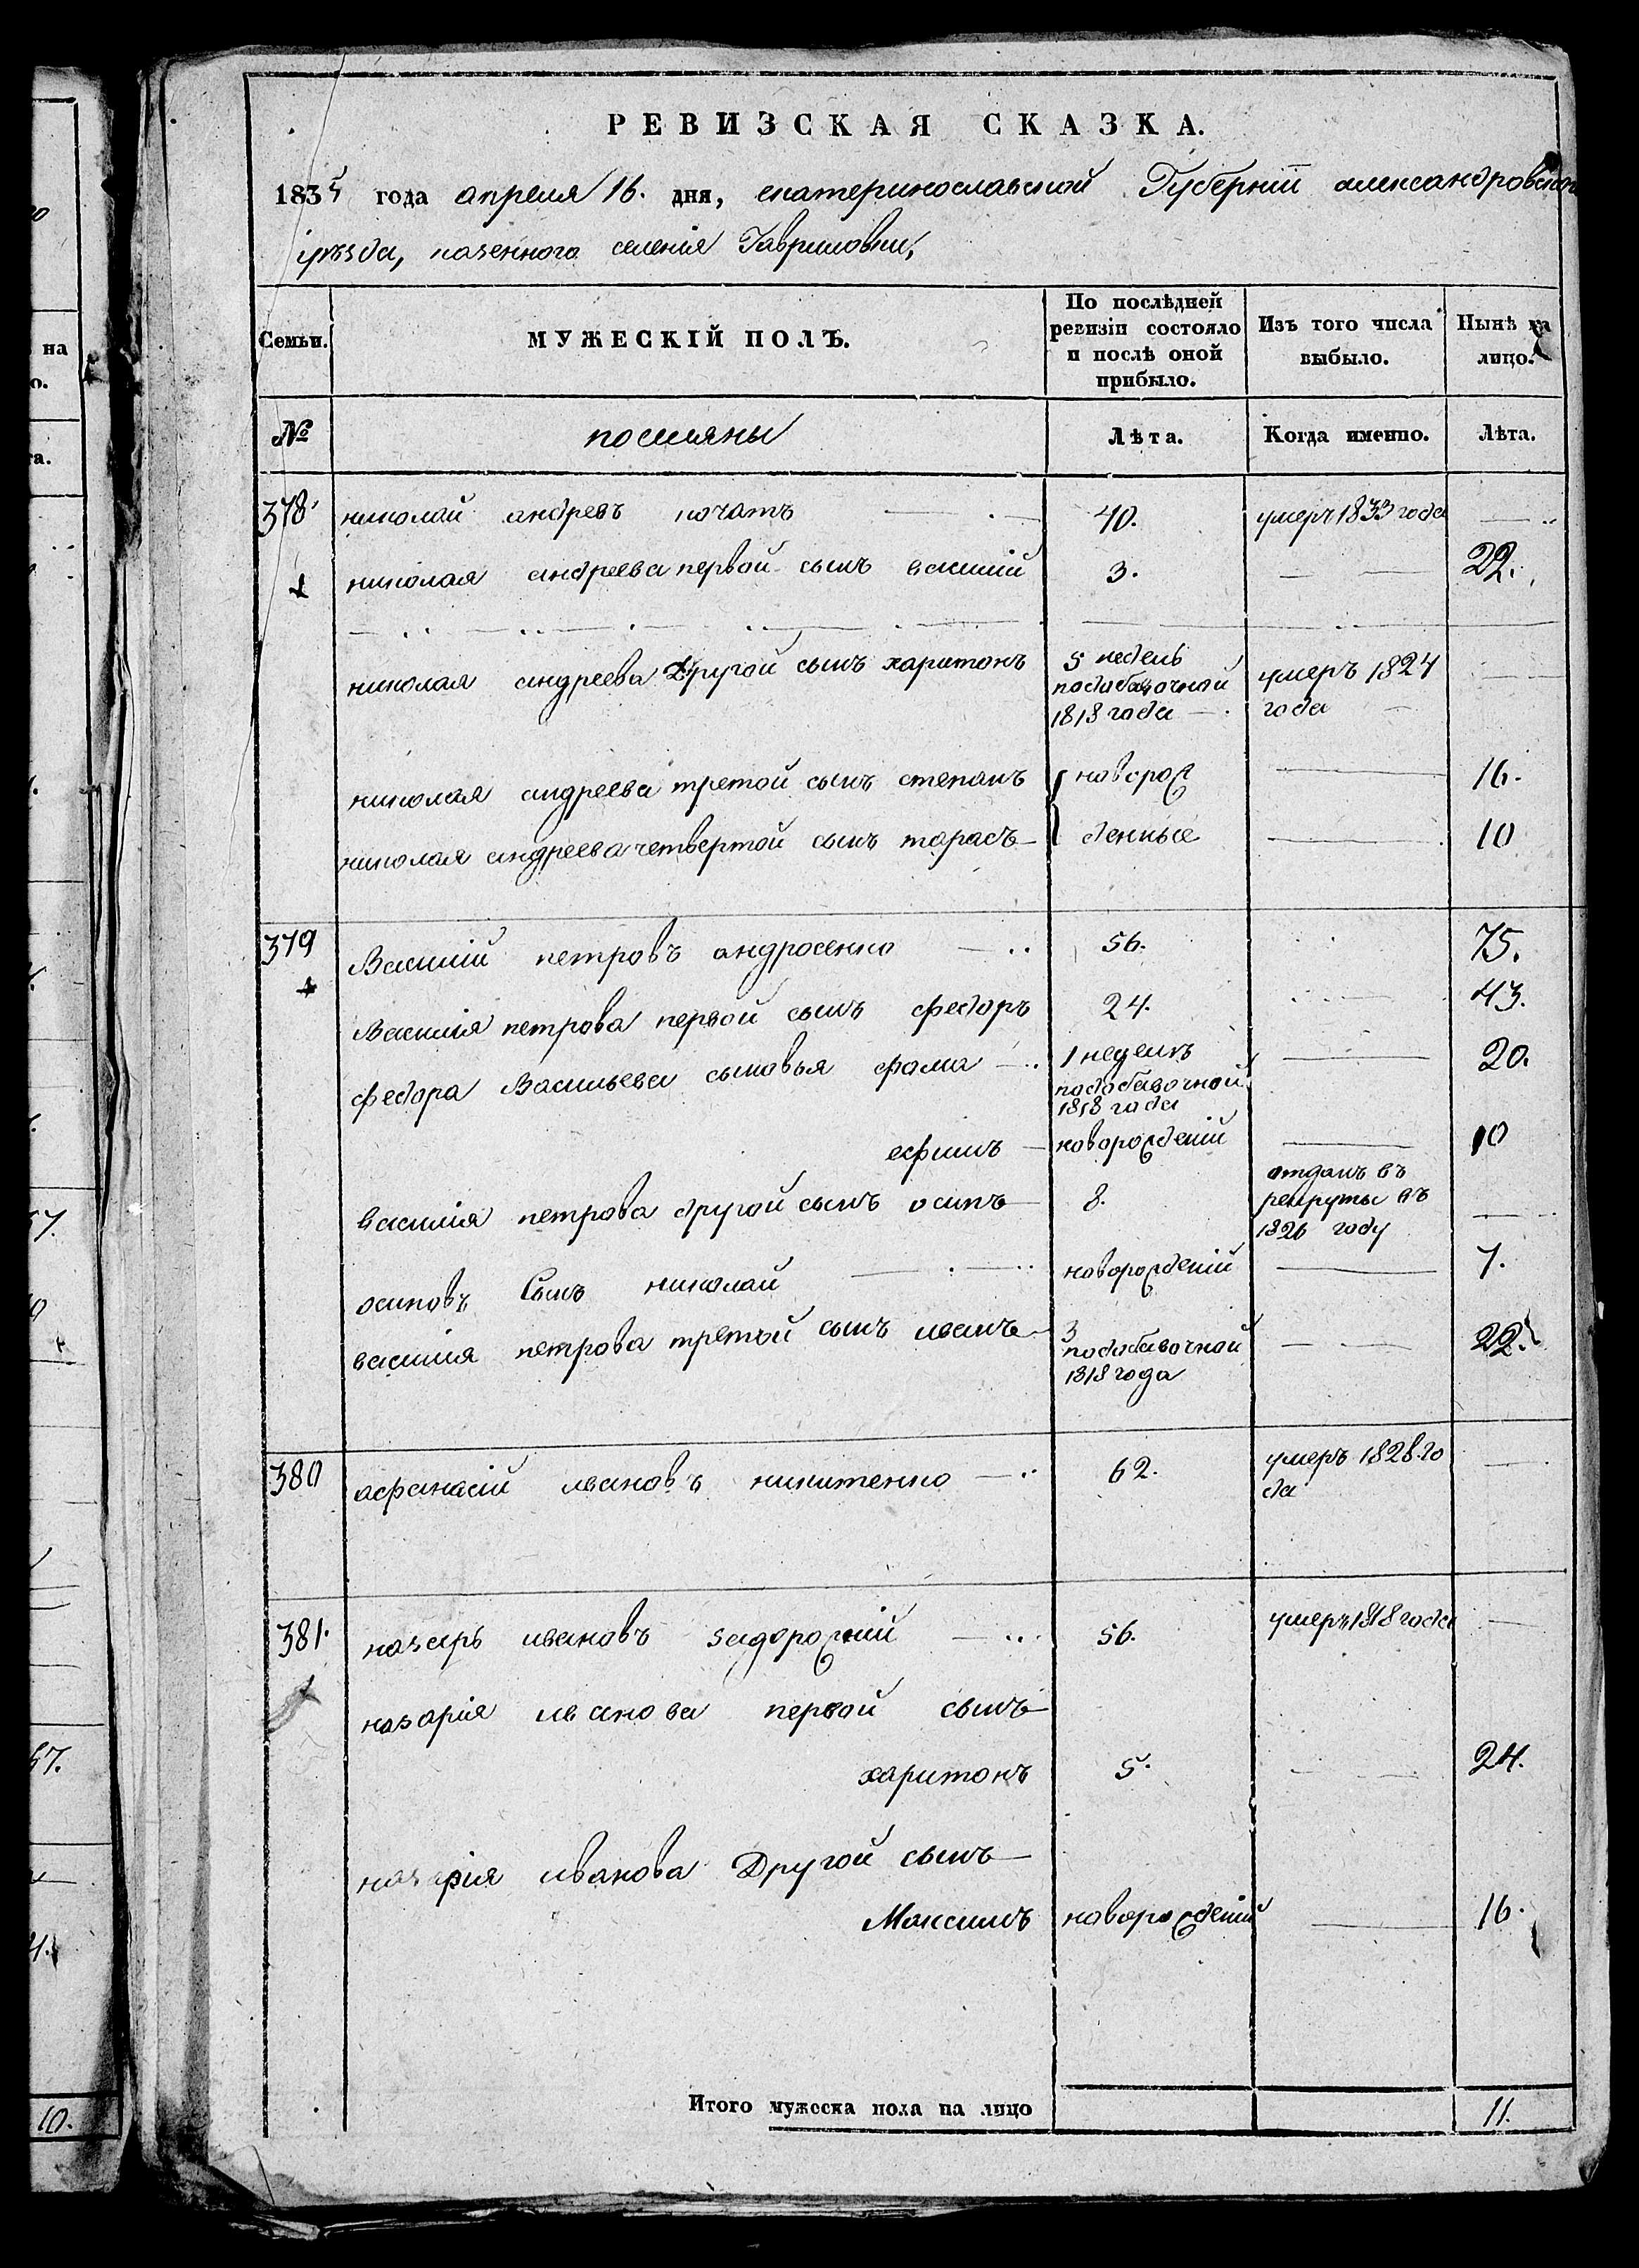 РЕВИЗСКАЯ СКАЗКА.
1835 года апреля 16. дня, екатеринославской Губерніи александровского
уѣзда, казенного селенія Гавриловки,
Семьи.
МУЖЕСКІЙ ПОЛЪ.
По послѣдней ревизіи состояло и послѣ оной прибыло.
Изъ того числа выбыло.
Нынѣ на лицо.
№ поселяны Лѣта. Когда именно. Лѣта.
378 николай андревъ кочатъ 40. умеръ 1833 года
николая андреева первой сынъ василій 3. 22.
николая андреева Другой сынъ харитонъ 5 недель подобавочной 1818 года умеръ 1824 года
николая андреева третой сынъ степанъ новорож 16.
николая андреева четвертой сынъ тарасъ денные 10
379 Василій петровъ андросенко 56. 75.
Василія петрова первой сынъ федоръ 24. 43.
федора Васильева сыновья фома 1 неделъ подобавочной 1818 года 20.
ефимъ новорожденій 10
василія петрова другой сынъ осипъ 8. отданъ въ рекруты въ 1826 году
осиповъ Сынъ николай новорожденій 7.
василія петрова третой сынъ иванъ 3 подобавочной 1818 года 22.
380 афанасій ивановъ никитенко 62. умеръ 1828 го
да
381. назаръ ивановъ задорожній 56. умеръ 1818 года
назарія иванова первой сынъ
харитонъ 5. 24.
назарія иванова Другой сынъ
Максимъ новорожденій 16.
Итого мужеска пола на лицо 11.
на
о.
та.
57.
10.